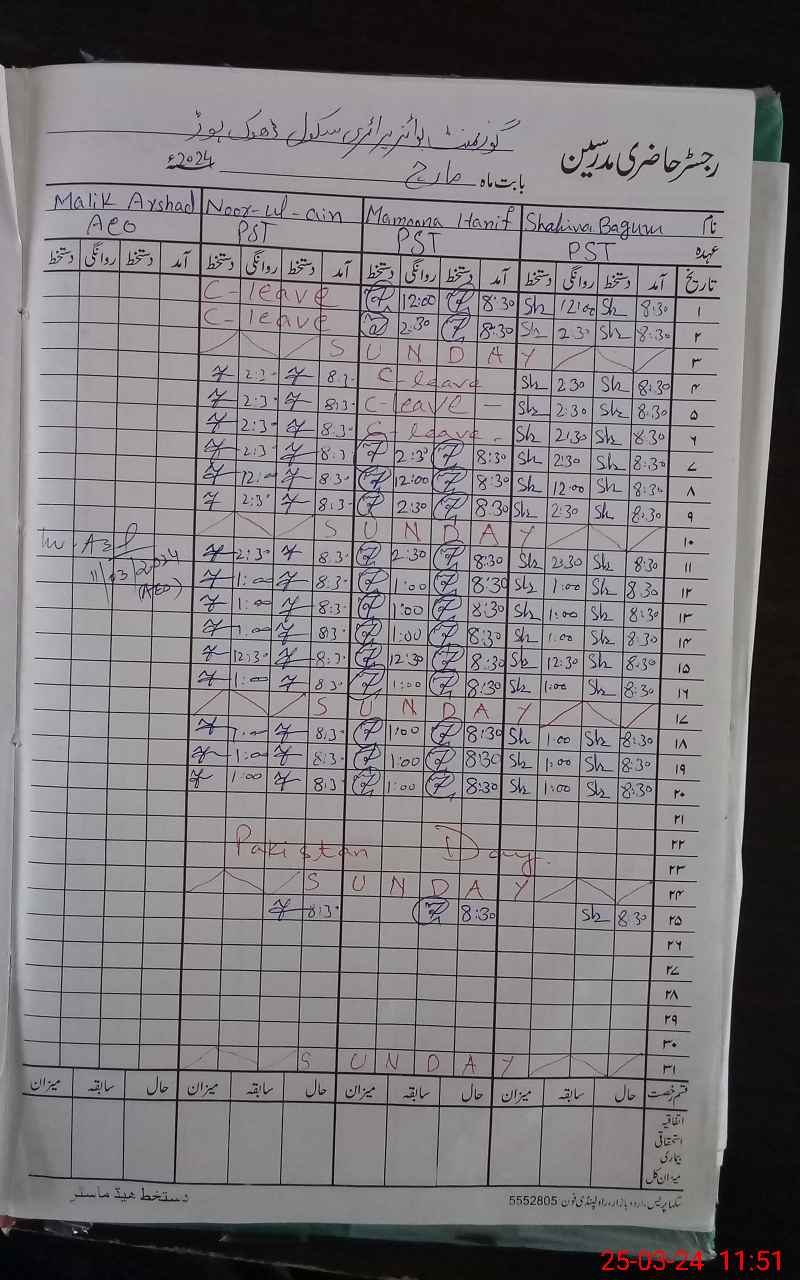 گورنمنٹ بوائز پرائمری سکول ڈھوک ہوڑ
رجسٹر حاضری مدرسین
بابت ماہ مارچ 2024ء
نام Shakira Bagum Mamoona Hanif Noor-ul-ain Malik Arshad
عہدہ PST PST PST AEO
تاریخ آمد دستخط روانگی دستخط آمد دستخط روانگی دستخط آمد دستخط روانگی دستخط آمد دستخط روانگی دستخط
۱ 8:30 Sh 12:00 Sh 8:30 12:00 C-leave
۲ 8:30 Sh 2:30 Sh 8:30 2:30 C-leave
۳ SUNDAY
۴ 8:30 Sh 2:30 Sh C-leave 8:3 2:3
۵ 8:30 Sh 2:30 Sh C-leave – 8:3 2:3
۶ 8:30 Sh 2:30 Sh C-leave – 8:3 2:3
۷ 8:30 Sh 2:30 Sh 8:30 2:3 8:3 2:3
۸ 8:30 Sh 12:00 Sh 8:30 12:00 8:3 12:00
۹ 8:30 Sh 2:30 Sh 8:30 2:30 8:3 2:3
۱۰ SUNDAY
۱۱ 8:30 Sh 2:30 Sh 8:30 2:30 8:3 2:30
11/03/2024
(AEO)
۱۲ 8:30 Sh 1:00 Sh 8:30 1:00 8:3 1:00
۱۳ 8:30 Sh 1:00 Sh 8:30 1:00 8:3 1:00
۱۴ 8:30 Sh 1:00 Sh 8:30 1:00 8:3 1:00
۱۵ 8:30 Sh 12:30 Sh 8:30 12:30 8:3 12:3
۱۶ 8:30 Sh 1:00 Sh 8:30 1:00 8:3 1:00
۱۷ SUNDAY
۱۸ 8:30 Sh 1:00 Sh 8:30 1:00 8:3 1:00
۱۹ 8:30 Sh 1:00 Sh 8:30 1:00 8:3 1:00
۲۰ 8:30 Sh 1:00 Sh 8:30 1:00 8:3 1:00
۲۱
۲۲
۲۳ Pakistan Day.
۲۴ SUNDAY
۲۵ 8:30 Sh 8:30 8:30
۲۶
۲۷
۲۸
۲۹
۳۰
۳۱ SUNDAY
قسم رخصت حال سابقہ میزان حال سابقہ میزان حال سابقہ میزان حال سابقہ میزان
اتفاقیہ
استحقاقی
بیماری
میزان کل
پریس، اردو بازار، راولپنڈی فون: 5552805 دستخط ہیڈ ماسٹر
25-03-24 11:51